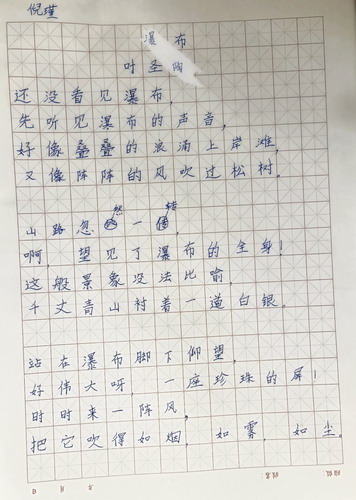 倪瑾
瀑布
叶圣陶
还没看见瀑布，
先听见瀑布的声音，
好像叠叠的浪涌上岸滩，
又像阵阵的风吹过松树。
山路忽然一转，
啊，望见了瀑布的全身！
这般景象没法比喻，
千丈青山衬着一道白银。
站在瀑布脚下仰望，
好伟大呀，一座珍珠的屏！
时时来一阵风，
把它吹得如烟，如雾，如尘。